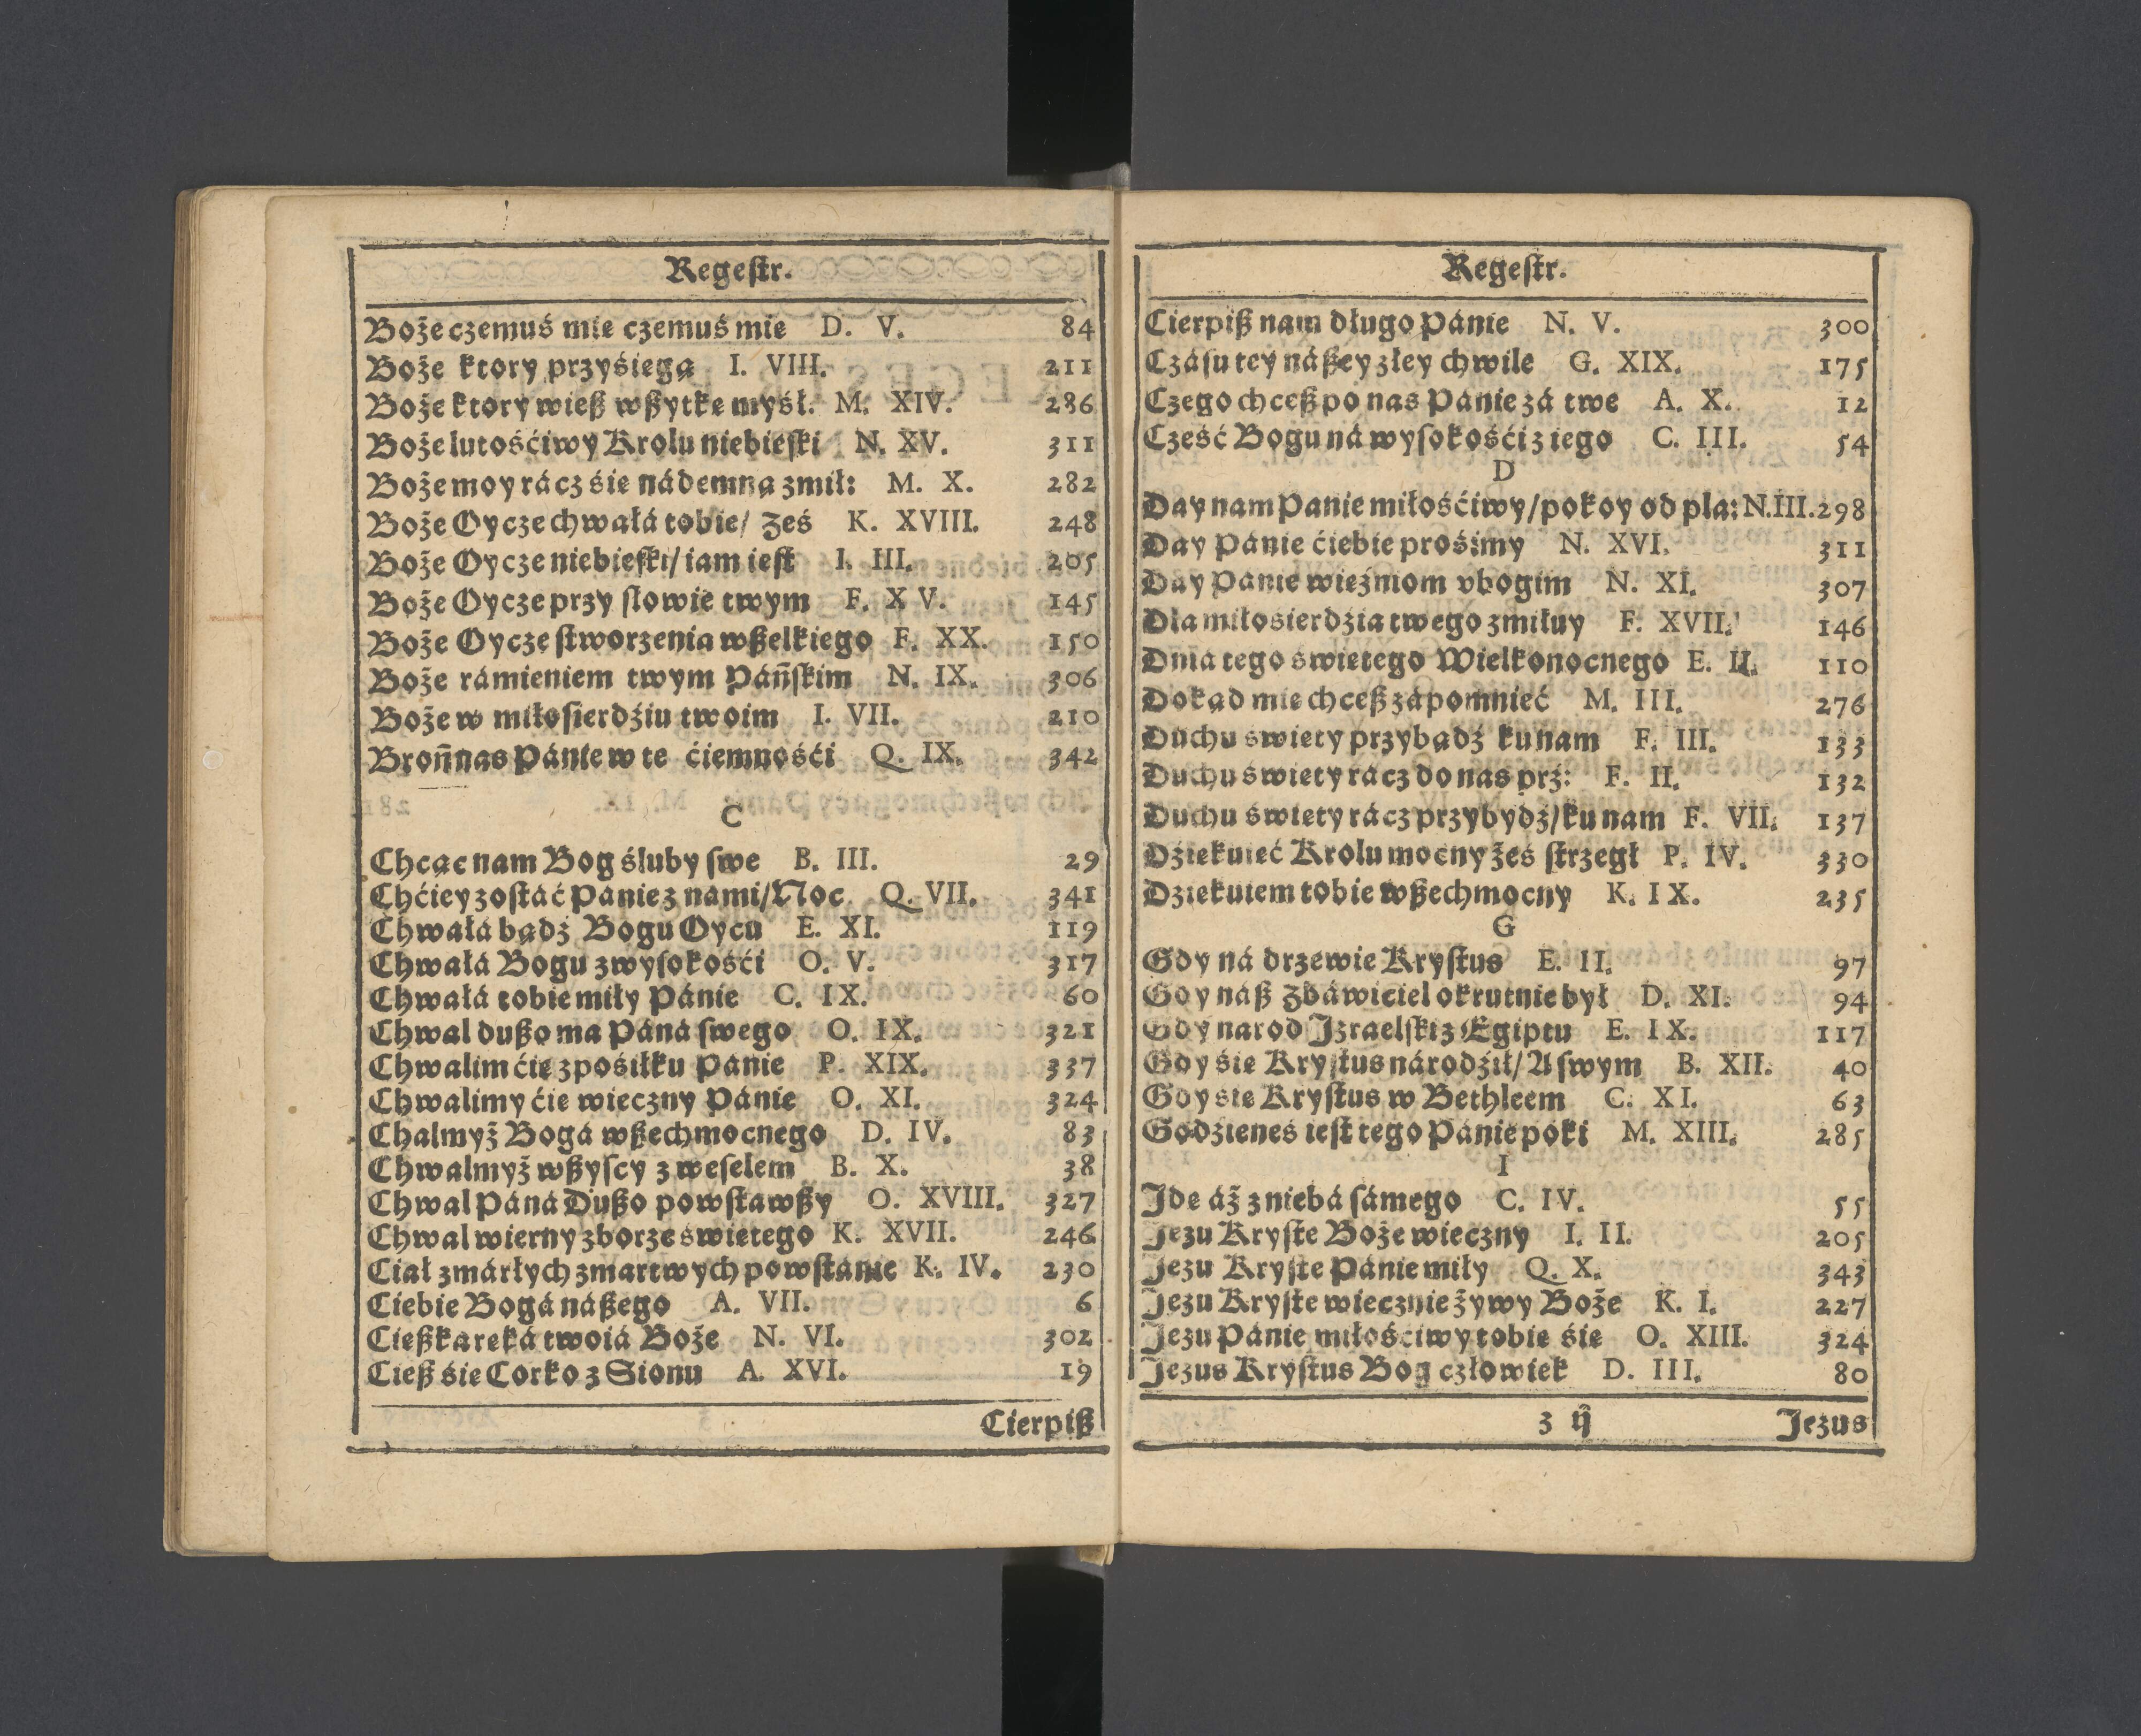 Regeſtr.
Boże czemuś mie czemuś mie D. V. 84
Boże ktory przyśiega I. VIII. 211
Boże ktory wieß wßytke myśl. M. XIV. 286
Boże lutośćiwy Krolu niebieſki N. XV. 311
Boże moy rácz śie nádemną zmił: M. X. 282
Boże Oycze chwałá tobie/ Żeś K. XVIII. 248
Boże Oycze niebieſki/ iam ieſt I. III. 205
Boże Oycze przy ſlowie twym F. XV. 145
Boże Oycze ſtworzenia wßelkiego F. XX. 150
Boże rámieniem twym Páńſkim N. IX. 306
Boże w miłoſierdźiu twoim I. VII. 210
Broń nas Pánie w te ćiemnośći Q. IX. 342
C
Chcąc nam Bog śluby ſwe B. III. 29
Chćiey zoſtáć Panie z nami/ Noc Q. VII. 341
Chwałá bądź Bogu Oycu E. XI. 119
Chwałá Bogu z wyſokośći O. V. 317
Chwałá tobie miły Pánie C. IX. 60
Chwal dußo ma Páná ſwego O. IX. 321
Chwalim ćię z pośiłku Panie P. XIX. 337
Chwalimy ćie wieczny Pánie O. XI. 324
Chalmyż Bogá wßechmocnego D. IV. 83
Chwalmyż wßyſcy z weſelem B. X. 38
Chwal Páná Dußo powſtawßy O. XVIII. 327
Chwal wierny zborze świetego K. XVII. 246
Ciał zmárłych zmartwych powſtanie K. IV. 230
Ciebie Bogá náßego A. VII. 6
Cießka reká twoiá Boże N. VI. 302
Cieß śie Corko z Sionu A. XVI. 19
Cierpiß
Regeſtr.
Cierpiß nam długo Pánie N. V. 300
Czáſu tey náßey złey chwile G. XIX. 175
Czego chceß po nas Pánie zá twe A. X. 12
Cześć Bogu ná wyſokośći z iego C. III. 54
D
Day nam Panie miłośćiwy/ pokoy od pla: N. III. 298
Day Pánie ćiebie prośimy N. XVI. 311
Day Panie wieźniom vbogim N. XI. 307
Dla miłosierdzia twego zmiłuy F. XVII. 146
Dnia tego świetego Wielkonocnego E. II. 110
Dokąd mie chceß zápomnieć M. III. 276
Duchu swiety przybądź ku nam F. III. 133
Duchu świety rácz do nas prź: F. II. 132
Duchu świety rácz przybydź/ ku nam F. VII. 137
Dźiekuieć Krolu mocny żeś ſtrzegł P. IV. 330
Dziekuiem tobie wßechmocny K. IX. 235
G
Gdy ná drzewie Kryſtus E. II. 97
Gdy náß Zbáwiciel okrutnie był D. XI. 94
Gdy narod Izraelſki z Egiptu E. IX. 117
Gdy śie Kryſtus národźił/ A ſwym B. XII. 40
Gdy sie Kryſtus w Bethleem C. XI. 63
Godzieneś ieſt tego Pánie poki M. XIII. 285
I
Ide áż z niebá ſámego C. IV. 55
Jezu Kryſte Boże wieczny I. II. 205
Jezu Kryſte Pánie miły Q. X. 343
Jezu Kryſte wiecznie żywy Boże K. I. 227
Jezu Pánie miłośćiwy tobie śie O. XIII. 324
Jezus Kryſtus Bog człowiek D. III. 80
z ij Jezus